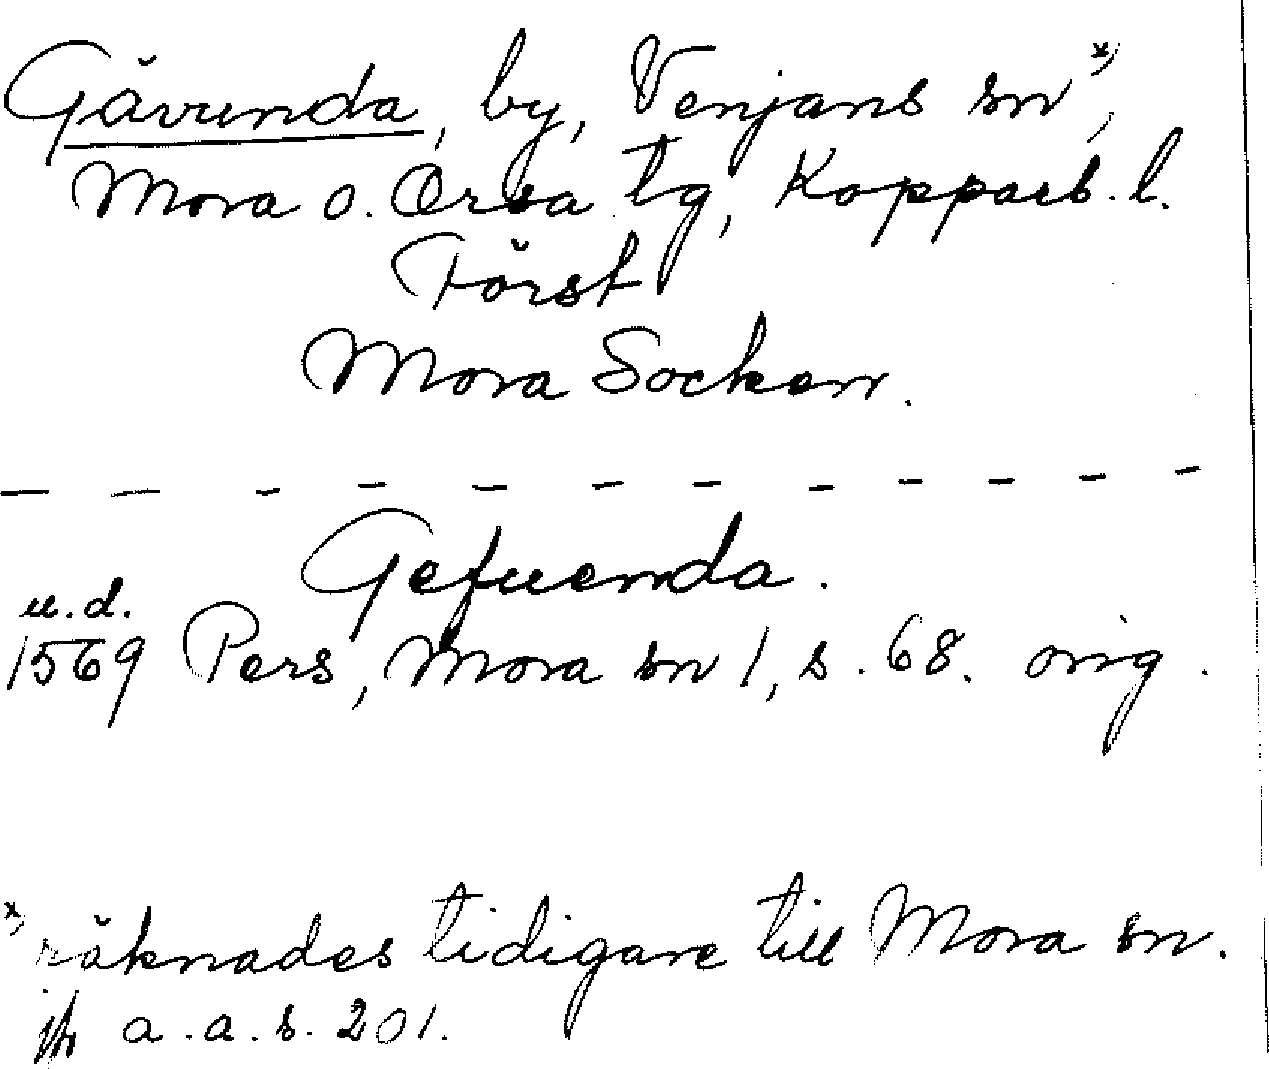 Gävunda, by, Venjans sn*),
Mora o. Orsa tg, Kopparb. l.
Först
Mora Sockenn.
— — — — — — — — — — — —
Gefuenda.
u.d.
1569 Pers, Mora sn 1, s. 68. orig.
*) räknades tidigare till Mora sn.
jfr a.a. s. 201.